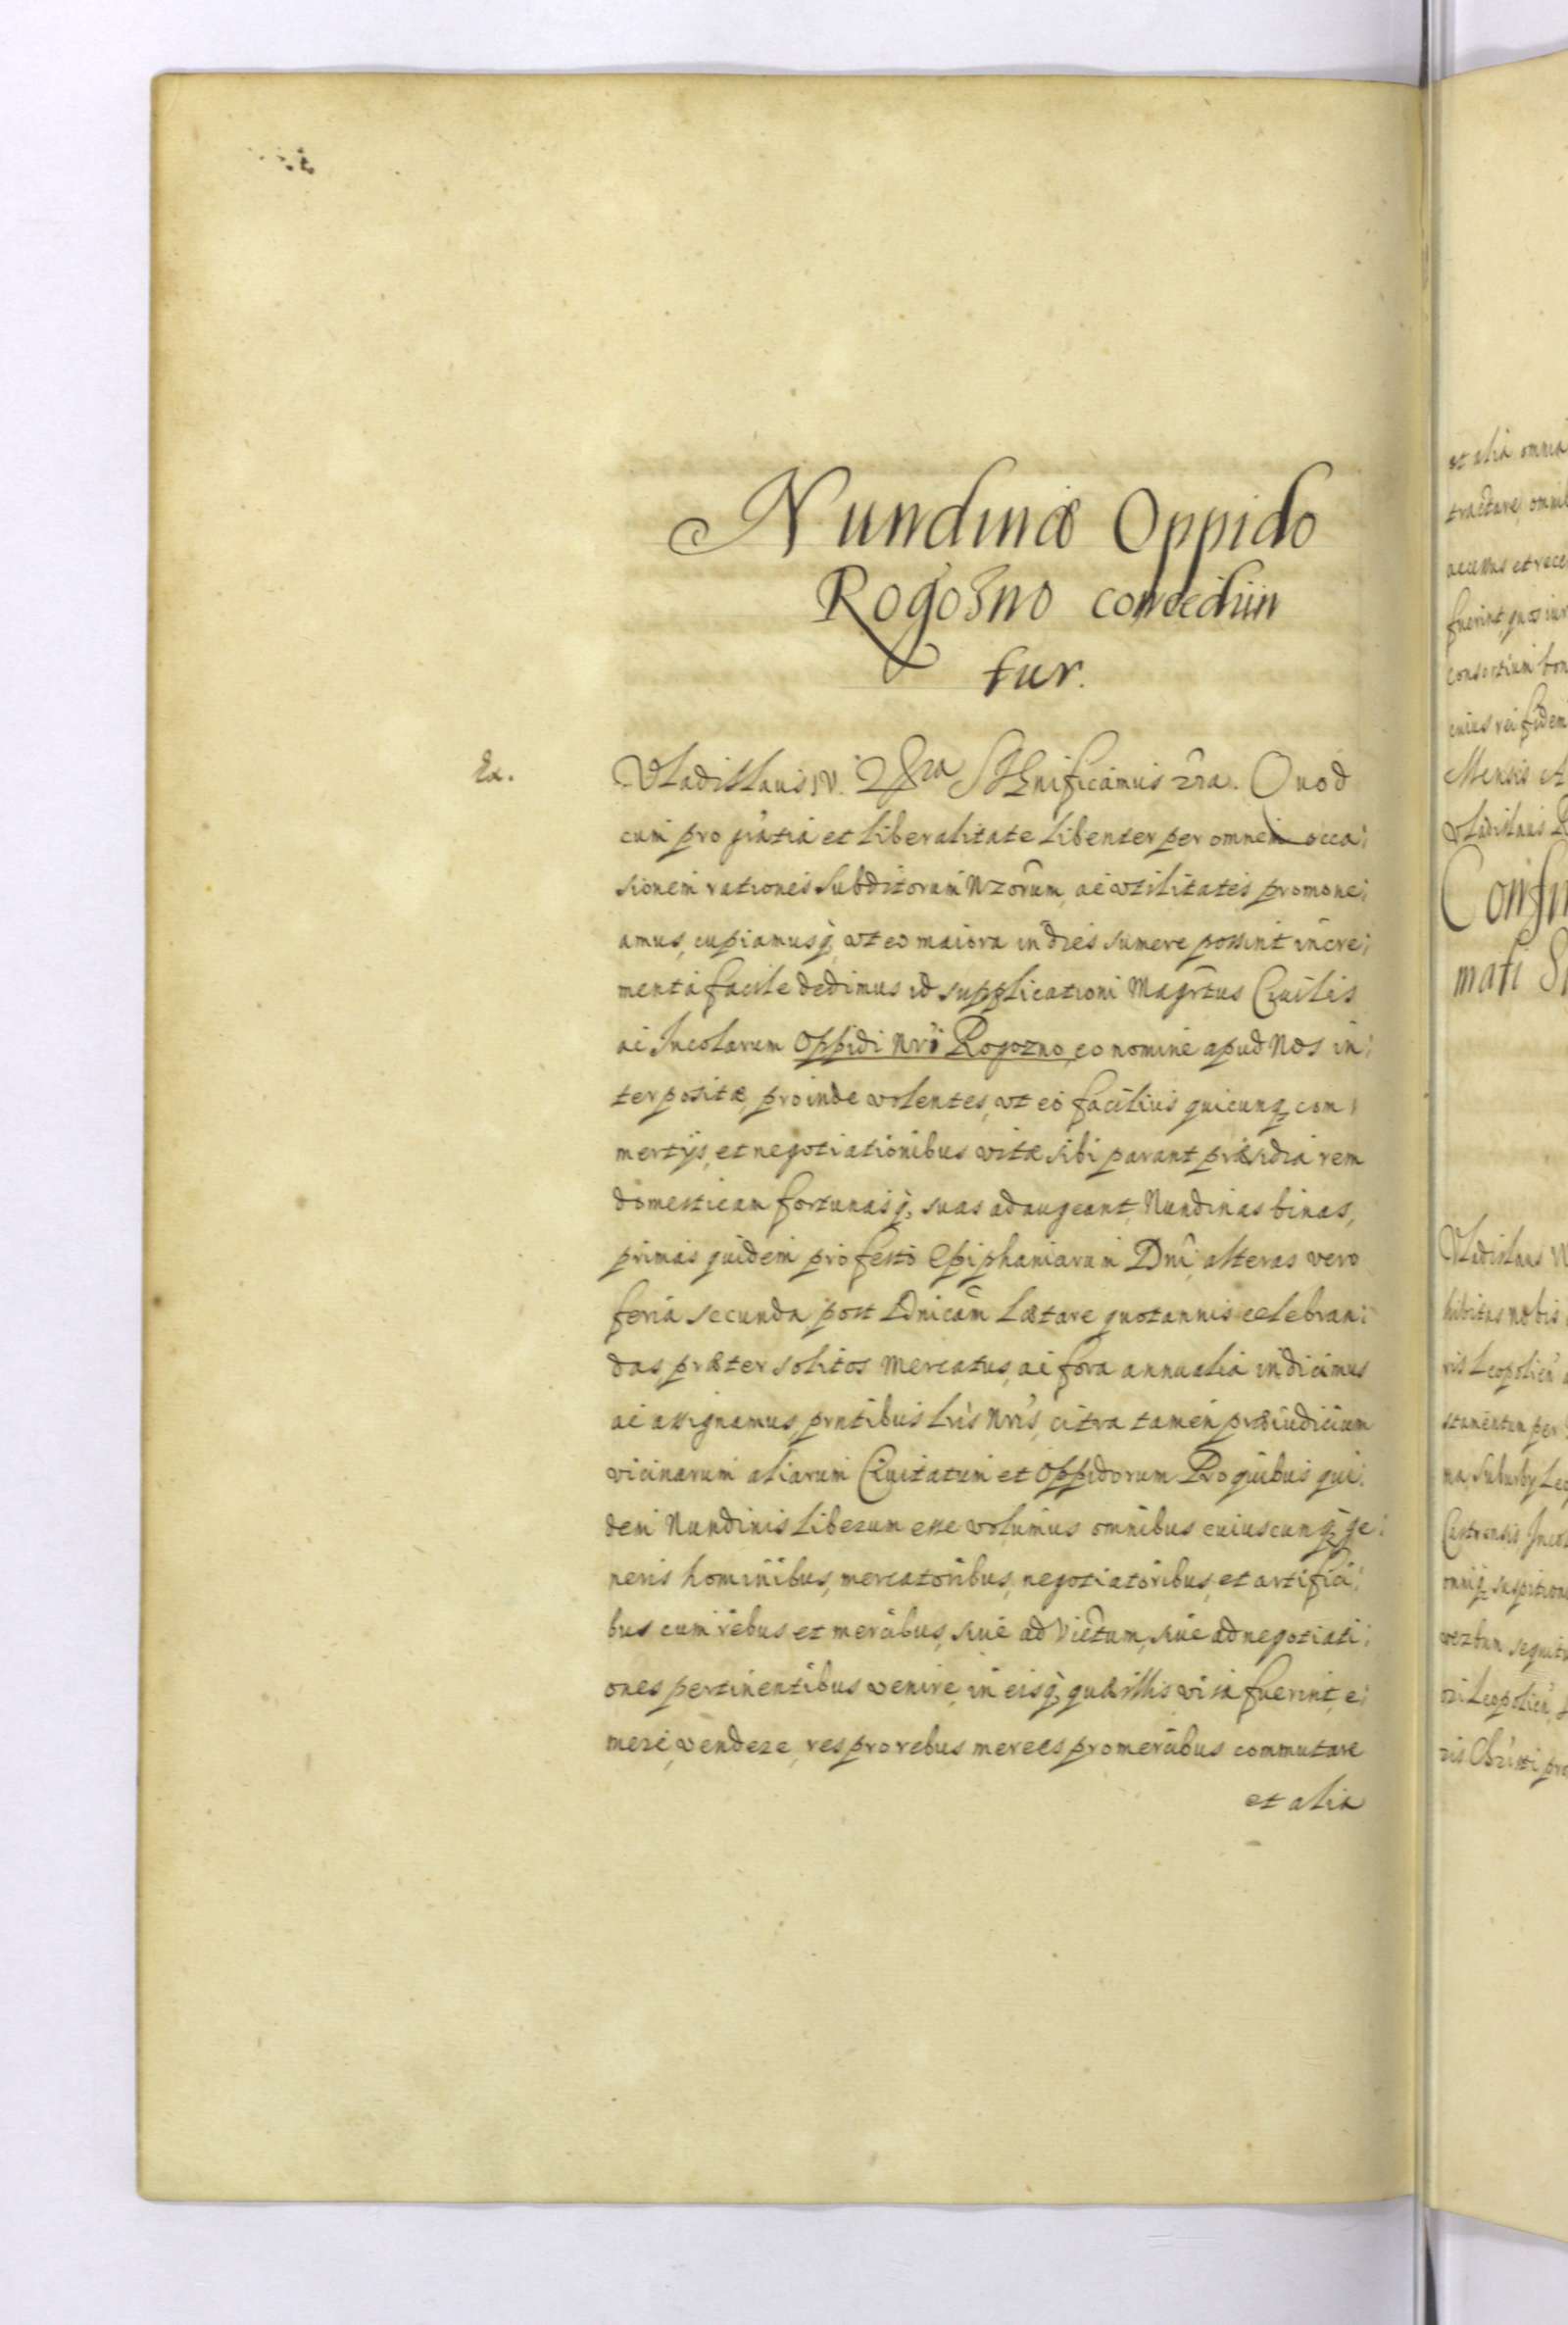 Nundinæ Oppido
Rogozno conceduin
tur.
Ex.
Vladislaus IV. Significamus nra. Quod
cum pro gratia et liberalitate libenter per omnem occa:
sionem rationes Subditorum Nrorum, ac vtilitates promone:
amus, cupiamusq, vt eo maiora in dies sumere possint incre:
menta facile dedimus id supplicationi Magrtus Ciuilis
ac Incolarum Oppidi Nri Rogozno, eo nomine apud Nos in:
terpositæ, proinde volentes, vt eo facilius quicunq, com:
mertijs, et negotiationibus vitæ sibi parant præsidia rem
domesticam fortunasq, suas adaugeant, Nundinas binas,
primas quidem pro festo Epiphaniarum Dni, alteras vero
feria secunda post Dnicam Lætare quotannis celebran:
das præter solitos Mercatus, ac fora annualia indicimus
ac assignamus, prntibus Lris Nris, citra tamen præiudicium
vicinarum aliarum Ciuitatum et Oppidorum Pro quibus qui:
dem Nundinis liberum esse volumus omnibus cuiuscunq, ge:
neris hominibus, mercatoribus, negotiatoribus, et artifici:
bus cum rebus et mercibus, siue ad Victum, siue ad negotiati:
ones pertinentibus venire, in eisq, quæ illis visa fuerint, e:
mere, vendere, res pro rebus merces pro mercibus commutare
et alia
et alia omnia
tractare, omni
fuerint, quos iur
consortium bon
cuius rei fidem
Mensis
Confir
mati
Vladislaus
hibitas nobis
ris Leopolien
per
ma, Suburby Leo
Castrensis Inco
omniq, suspitione
sequitu
ri Leopolien
ris Christi pro